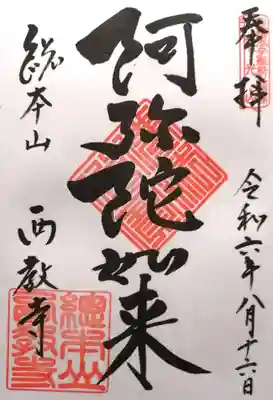 奉拝
令和六年八月十六日
阿弥陀如来
総本山
西教寺